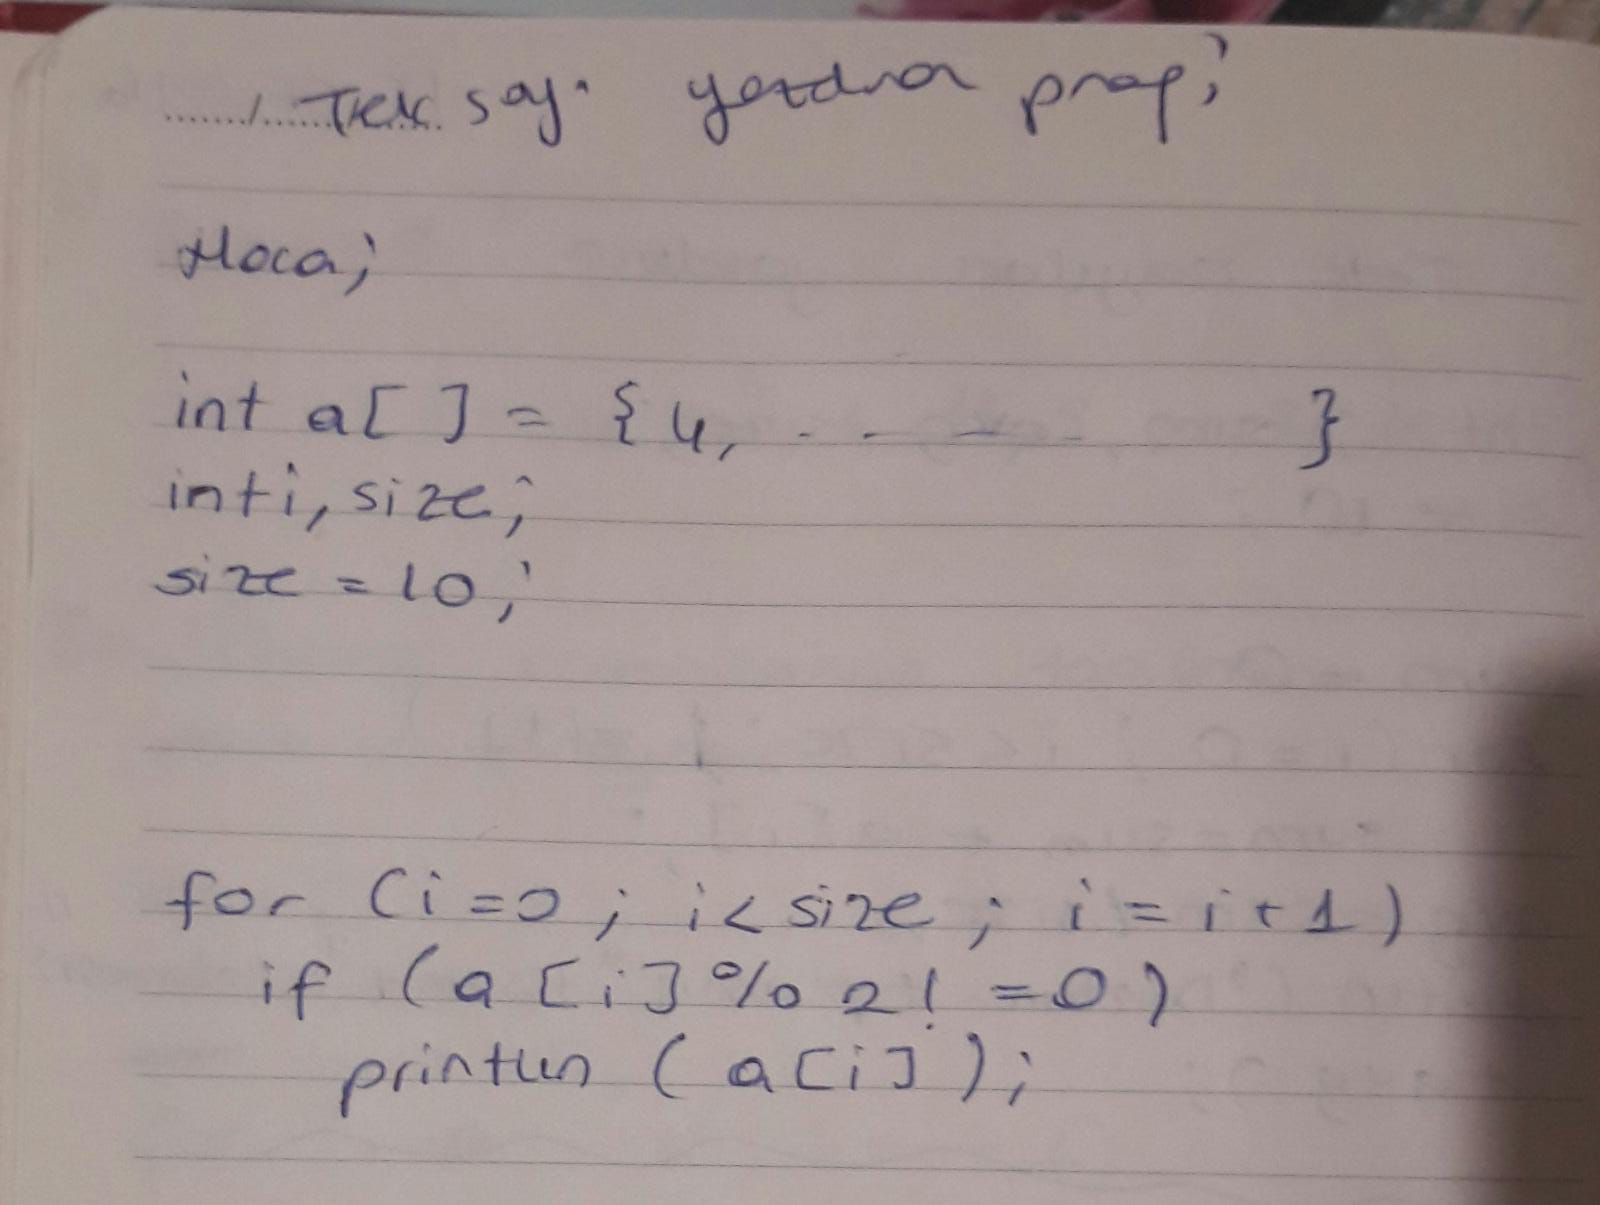 Tek say. yazdıra prog;
Hoca;
int a[ ] = {4, - - - - }
int i, size;
size = 10;
for (i=0; i< size; i=i+1)
if (a[i]%2!=0)
println (a[i]);